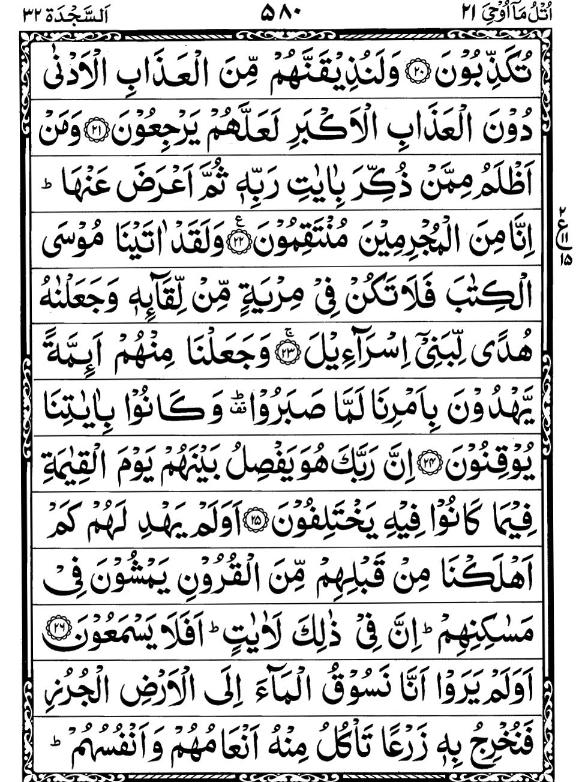 اُتْلُ مَآ اُوْحِیَ ۲۱ ۵۸۰ اَلسَّجْدَة ۳۲
تُكَذِّبُوْنَ ۝۲۰ وَلَنُذِیْقَنَّهُمْ مِّنَ الْعَذَابِ الْاَدْنٰی
دُوْنَ الْعَذَابِ الْاَكْبَرِ لَعَلَّهُمْ یَرْجِعُوْنَ ۝۲۱ وَمَنْ
اَظْلَمُ مِمَّنْ ذُكِّرَ بِاٰیٰتِ رَبِّهٖ ثُمَّ اَعْرَضَ عَنْهَا ؕ
اِنَّا مِنَ الْمُجْرِمِیْنَ مُنْتَقِمُوْنَ ۝۲۲ ع وَلَقَدْ اٰتَیْنَا مُوْسَی
۲ ع ۱۱ ۱۵
الْكِتٰبَ فَلَا تَكُنْ فِیْ مِرْیَةٍ مِّنْ لِّقَآئِهٖ وَجَعَلْنٰهُ
هُدًی لِّبَنِیْۤ اِسْرَآءِیْلَ ۝۲۳ۚ وَجَعَلْنَا مِنْهُمْ اَئِمَّةً
یَّهْدُوْنَ بِاَمْرِنَا لَمَّا صَبَرُوْا ؕ۫ وَكَانُوْا بِاٰیٰتِنَا
یُوْقِنُوْنَ ۝۲۴ اِنَّ رَبَّكَ هُوَ یَفْصِلُ بَیْنَهُمْ یَوْمَ الْقِیٰمَةِ
فِیْمَا كَانُوْا فِیْهِ یَخْتَلِفُوْنَ ۝۲۵ اَوَلَمْ یَهْدِ لَهُمْ كَمْ
اَهْلَكْنَا مِنْ قَبْلِهِمْ مِّنَ الْقُرُوْنِ یَمْشُوْنَ فِیْ
مَسٰكِنِهِمْ ؕ اِنَّ فِیْ ذٰلِكَ لَاٰیٰتٍ ؕ اَفَلَا یَسْمَعُوْنَ ۝۲۶
اَوَلَمْ یَرَوْا اَنَّا نَسُوْقُ الْمَآءَ اِلَی الْاَرْضِ الْجُرُزِ
فَنُخْرِجُ بِهٖ زَرْعًا تَاْكُلُ مِنْهُ اَنْعَامُهُمْ وَاَنْفُسُهُمْ ؕ